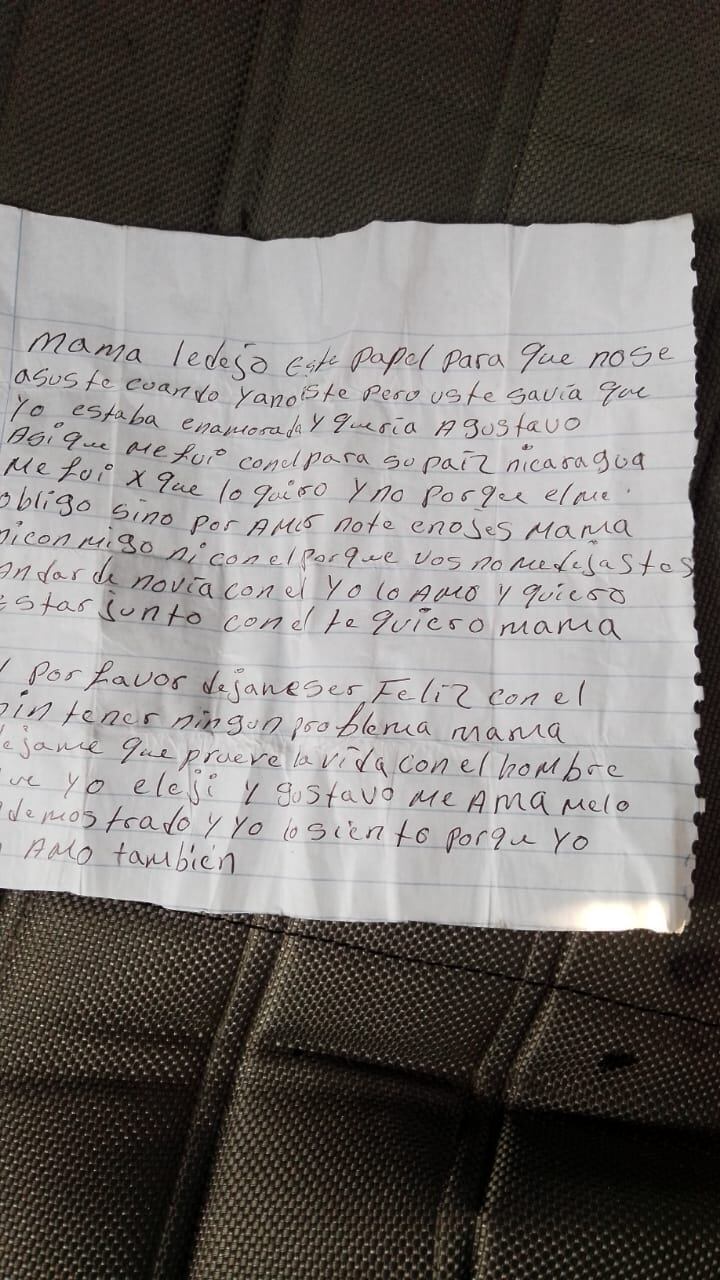 Mama ledejo Este papel para que nose
asuste cuando yanoiste pero uste savia que
yo estaba enamorada y queria A gustavo
Asi que me fui conel para su paiz nicaragua
Me fui x que lo quiro y no porque el me
obligo sino por AMor note enojes Mama
niconmigo ni con el porque vos no medejastes
andar de novia con el yo lo AMO y quiero
estar junto con el te quiero mama
y por favor dejameser Feliz con el
sin tener ningun problema mama
dejame que prueve la vida con el hombre
que yo eleji y gustavo Me AMA Melo
demostrado y yo lo siento porque yo
AMO también